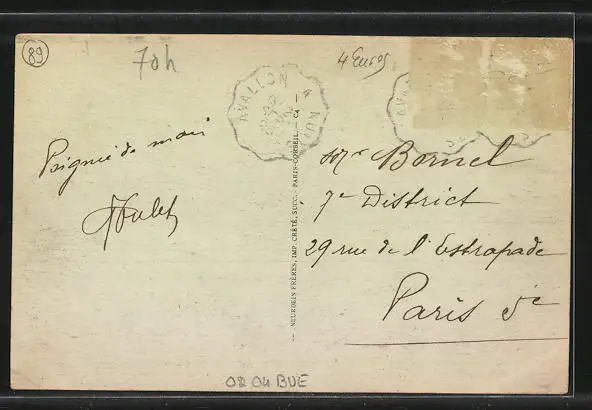 89
70h
4 Euros
AVALLON A NU
AVA
Poignée de main
Mr Bornel
7e District
29 rue de l'Estrapade
Paris Ve
— NEURDEIN FRÈRES, IMP. CRÉTÉ, SUCC. - PARIS-CORBEIL. — C4 —
02 04 BUE